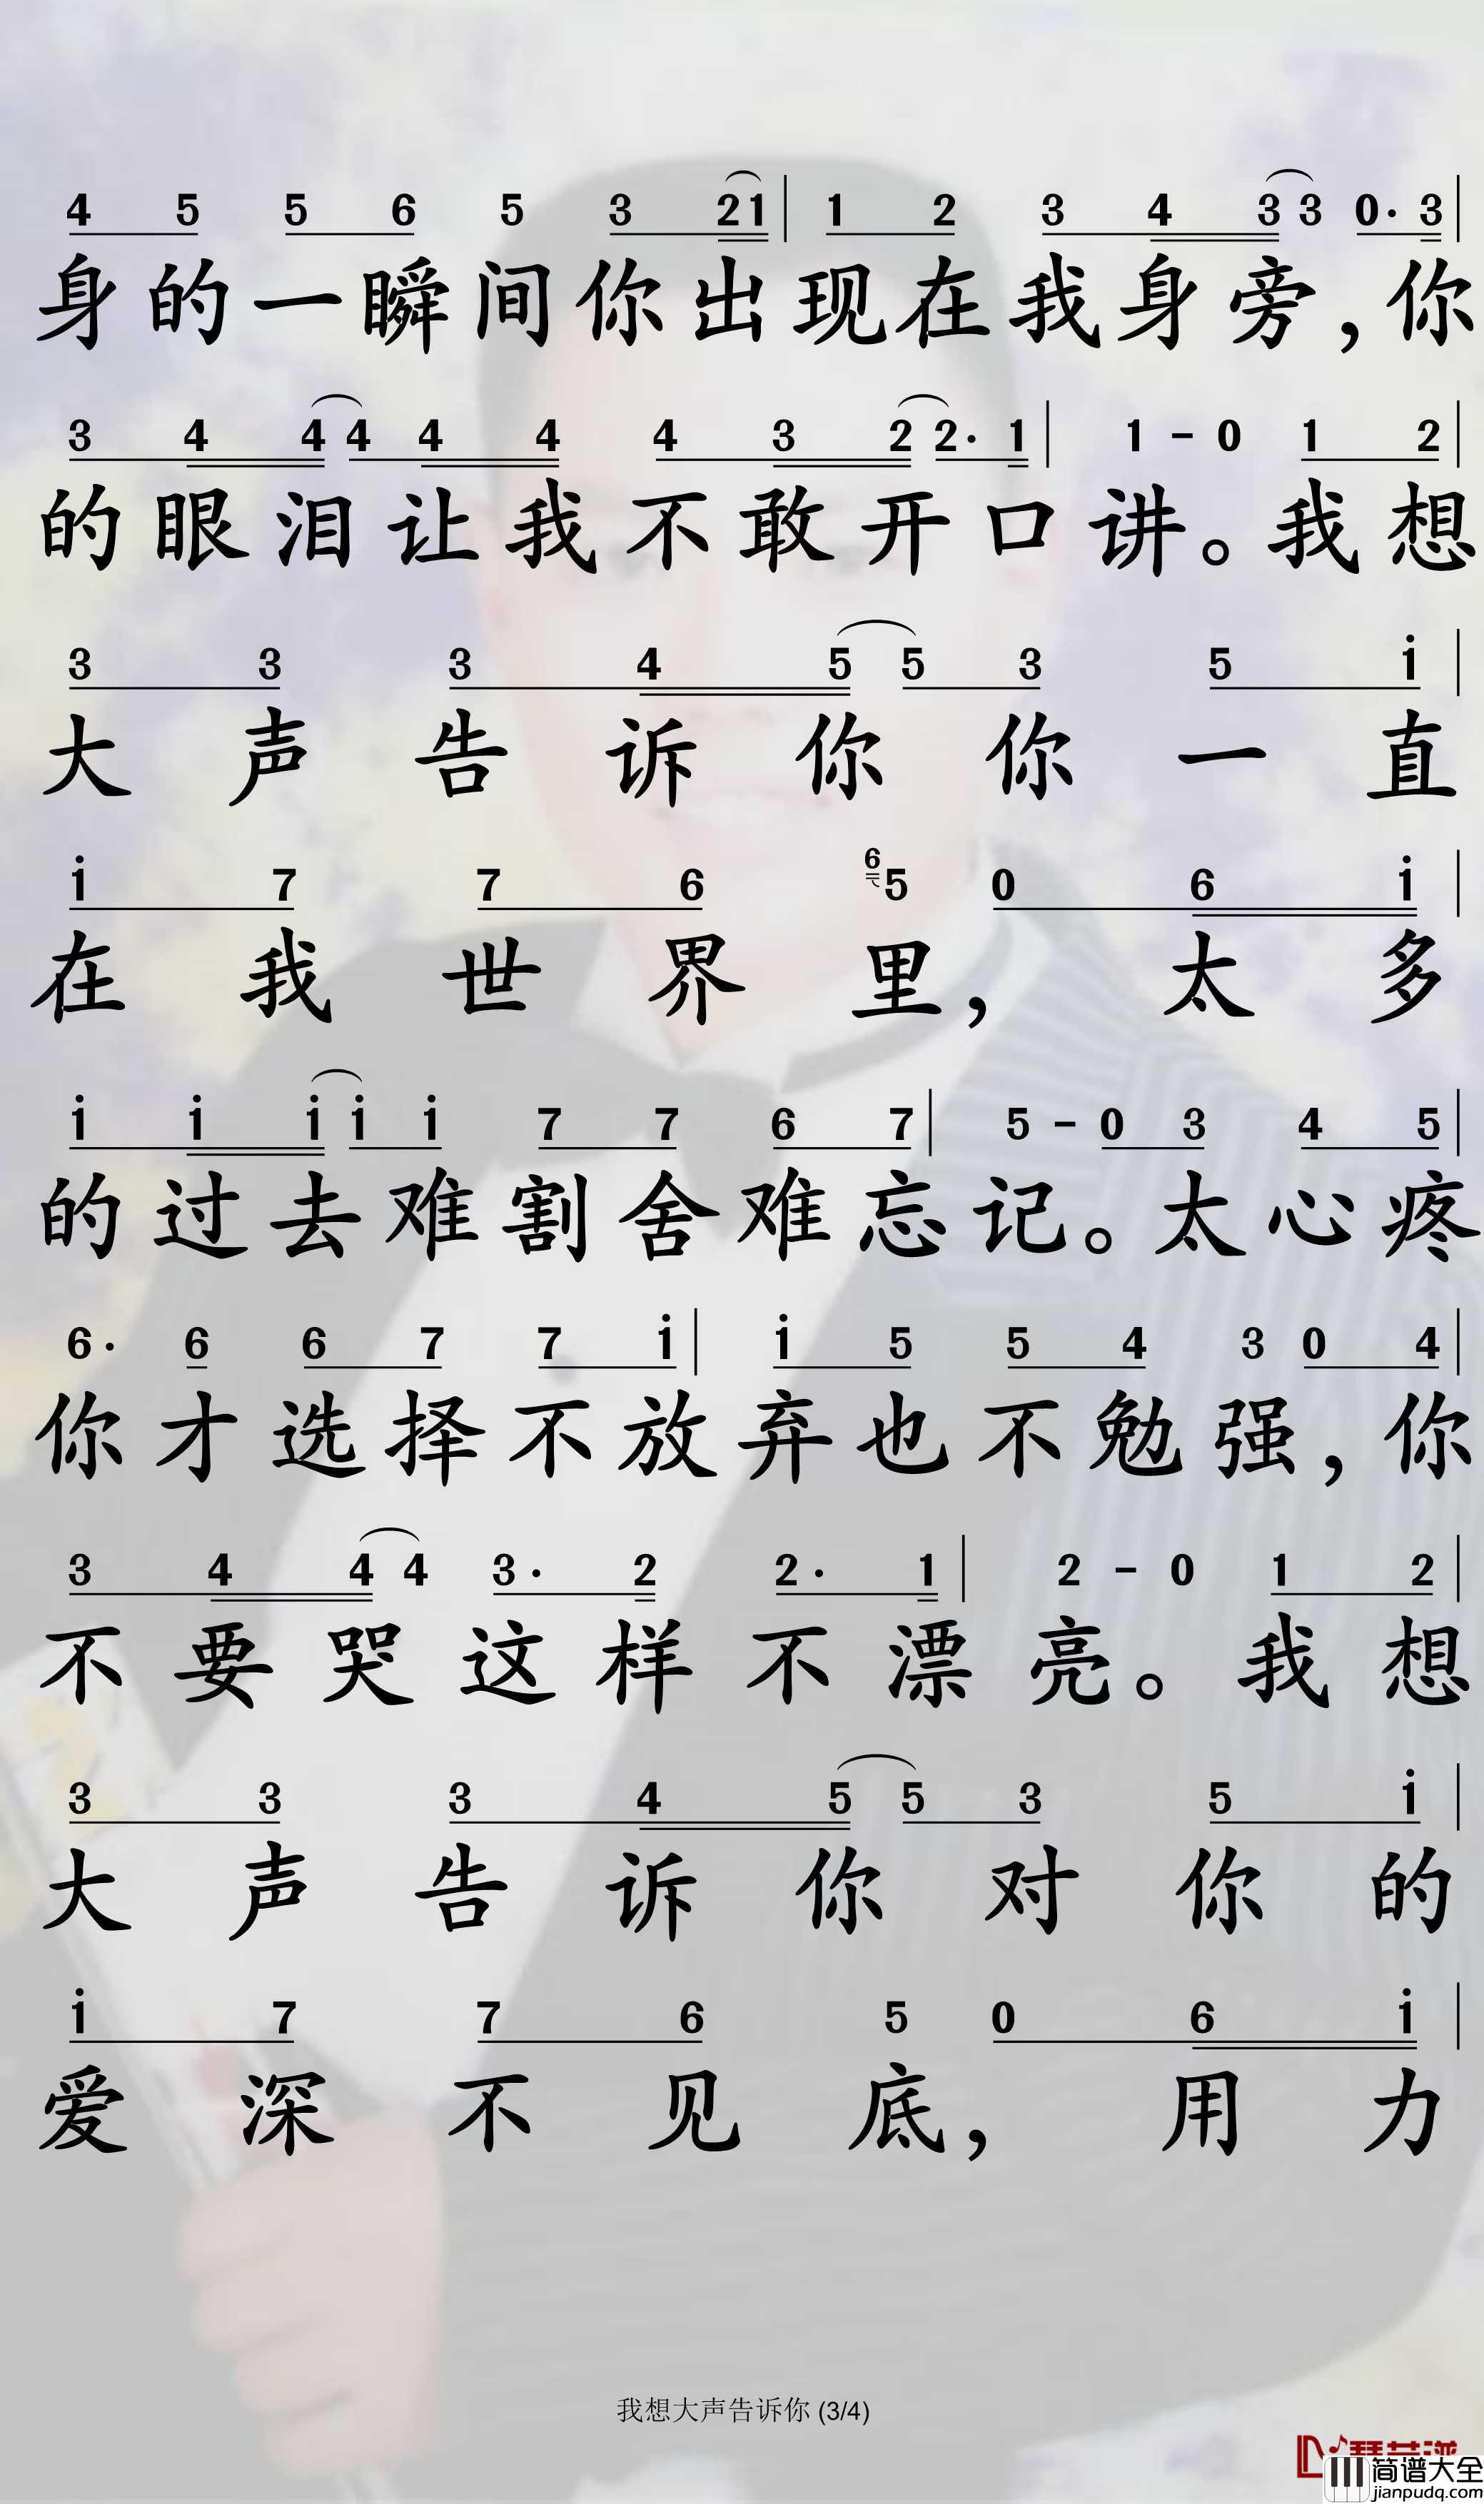 4 5 5 6 5 3 21 | 1 2 3 4 3 3 0· 3 |
身的一瞬间你出现在我身旁，你
3 4 4 4 4 4 4 3 2 2· 1 | 1 - 0 1 2 |
的眼泪让我不敢开口讲。我想
3 3 3 4 5 5 3 5 i |
大声告诉你你一直
i 7 7 6 6 5 0 6 i |
在我世界里，太多
i i i i i 7 7 6 7 | 5 - 0 3 4 5 |
的过去难割舍难忘记。太心疼
6· 6 6 7 7 i | i 5 5 4 3 0 4 |
你才选择不放弃也不勉强，你
3 4 4 4 3· 2 2· 1 | 2 - 0 1 2 |
不要哭这样不漂亮。我想
3 3 3 4 5 5 3 5 i |
大声告诉你对你的
i 7 7 6 5 0 6 i |
爱深不见底，用力
我想大声告诉你 (3/4)
简谱大全
jianpudq.com